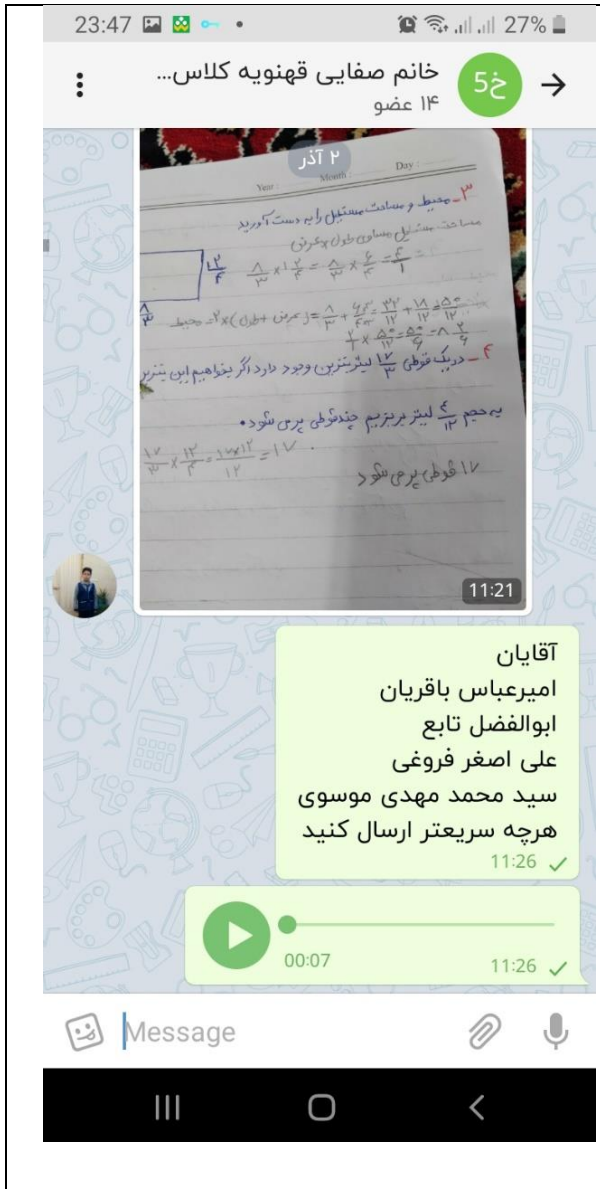 23:47 27%
خانم صفایی قهنویه کلاس...
۱۴ عضو
خ5
۲ آذر
Year: Month: Day:
۳_ محیط و مساحت مستطیل را به دست آورید
مساحت مستطیل مساوی طول × عرض
۱۲/۴ ۸/۳ × ۱۲/۴ = ۸/۳ × ۶/۴ = ۴/۱
۸/۳
محیط = ۲×(طول + عرض) = ۸/۳ +
۲/۱ × ۵۰/۱۲ = ۵۰/۶ = ۸ ۲/۶
۴_ در یک قوطی ۱۷/۳ لیتر بنزین وجود دارد اگر بخواهیم این بنزین
به حجم ۴/۱۲ لیتر بریزیم چند قوطی پر می شود.
۱۷/۳ × ۱۲/۴ = ۱۷×۱۲/۱۲ = ۱۷
۱۷ قوطی پر می شود
11:21
آقایان
امیرعباس باقریان
ابوالفضل تابع
علی اصغر فروغی
سید محمد مهدی موسوی
هرچه سریعتر ارسال کنید
11:26
00:07 11:26
Message